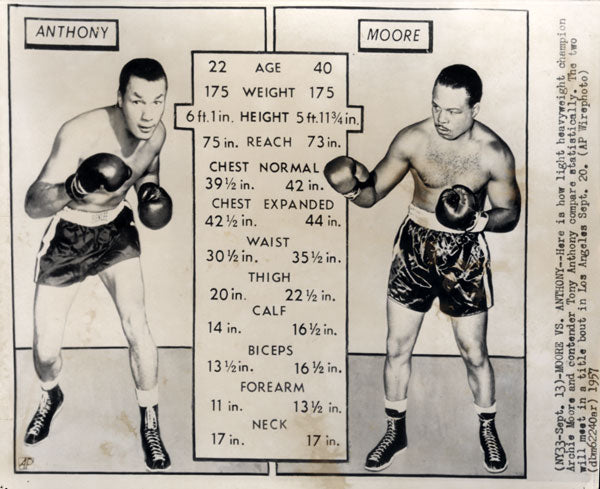 ANTHONY
MOORE
22 AGE 40
175 WEIGHT 175
6 ft. 1 in. HEIGHT 5 ft. 11 3/4 in.
75 in. REACH 73 in.
CHEST NORMAL
39 1/2 in. 42 in.
CHEST EXPANDED
42 1/2 in. 44 in.
WAIST
30 1/2 in. 35 1/2 in.
THIGH
20 in. 22 1/2 in.
CALF
14 in. 16 1/2 in.
BICEPS
13 1/2 in. 16 1/2 in.
FOREARM
11 in. 13 1/2 in.
NECK
17 in. 17 in.
AP
(NY33-Sept. 13)-MOORE VS. ANTHONY--Here is how light heavyweight champion
Archie Moore and contender Tony Anthony compare statistically. The two
will meet in a title bout in Los Angeles Sept. 20. (AP Wirephoto)
(dbm62240ar) 1957